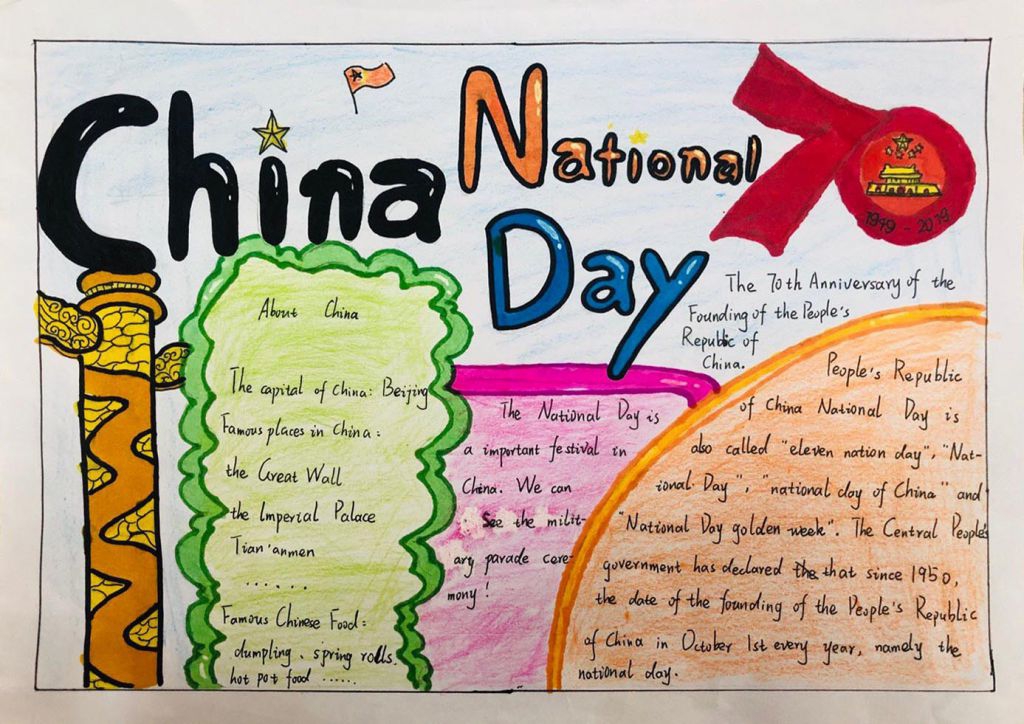 China
National
Day
1949-2019
The 70th Anniversary of the
Founding of the People's
Republic of
China.
About China
The capital of China: Beijing
Famous places in China:
the Great Wall
the Imperial Palace
Tian'anmen
......
Famous Chinese Food:
dumpling、spring rolls.
hot pot food ......
The National Day is
a important festival in
China. We can
See the milit-
ary parade cere-
mony!
People's Republic
of China National Day is
also called "eleven nation day", "Nat-
ional Day", "national day of China" and
"National Day golden week". The Central People's
government has declared the that since 1950,
the date of the founding of the People's Republic
of China in October 1st every year, namely the
national day.